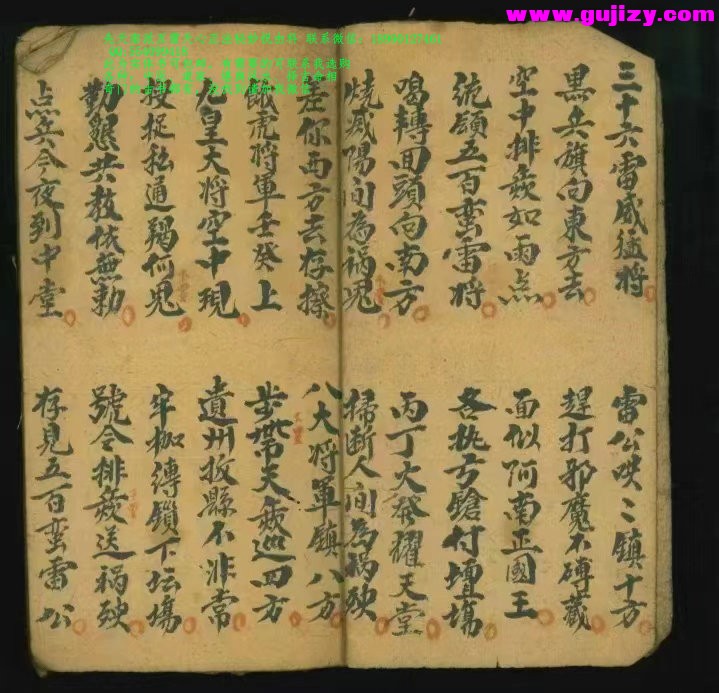 www.gujizy.com
三十六雷威猛将
雷公哄〻鎮十方
黑兵旗向東方去
趕打邪魔不磚藏
空中排兵如雨点
面似阿南正國王
統領五百蛮雷将
各执方鎗付壇塲
喝轉回頭向南方
丙丁火發耀天堂
燒咸陽间為禍鬼
掃断人间為祸殃
左你西方去存擦
八大将軍鎮八方
餓虎将軍壬癸上
步帶天兵巡四方
九皇天将空中現
遣州扳縣不非常
搜捉私通何鬼
牢枷縛鎖下坛塲
勤懇共教依無勅
號令排兵送祸殃
点兵今夜到中堂
存見五百蛮雷公